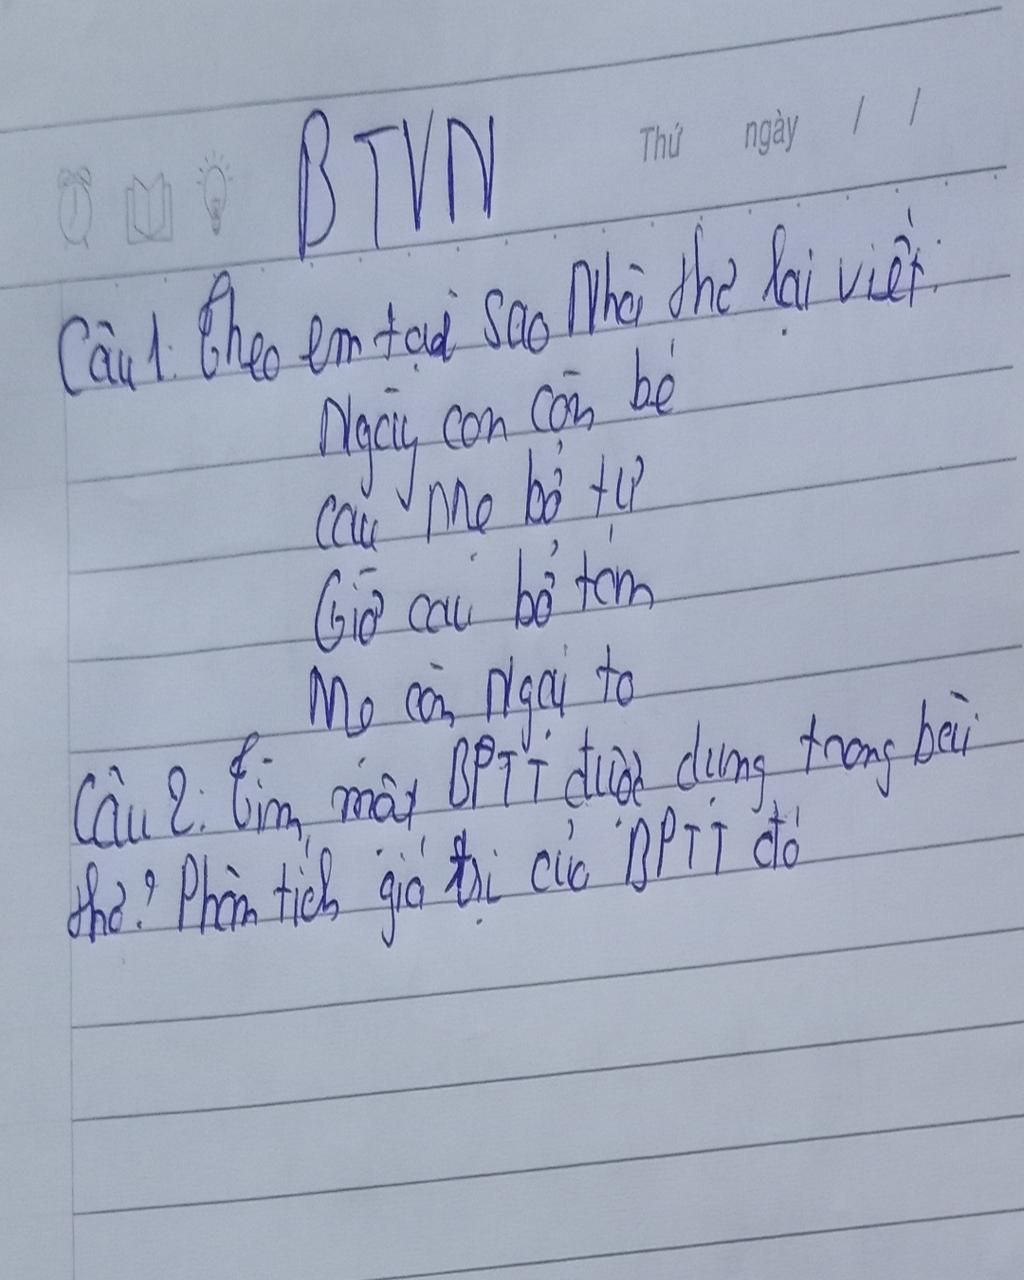 BTVN
Thứ ngày / /
Câu 1: Theo em tại sao Nhà thơ lại viết:
Ngày con còn bé
cau mẹ bổ tư
Giờ cau bổ tám
Mẹ còn Ngại to
Câu 2: Tìm một BPTT được dùng trong bài
thơ? Phân tích giá trị của BPTT đó